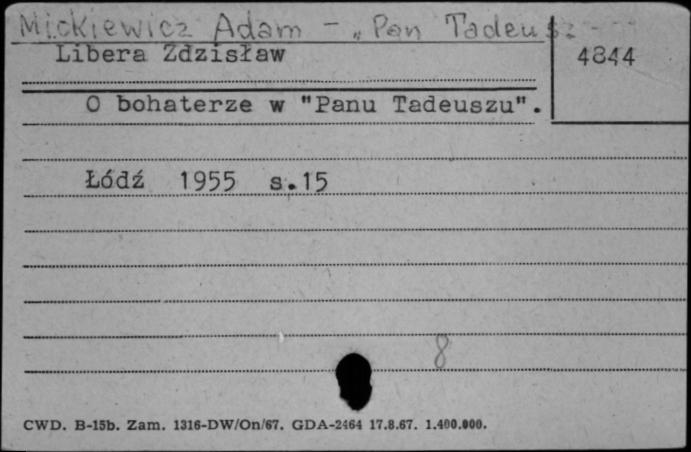 Mickiewicz Adam - „Pan Tadeusz
Libera Zdzisław
4844
O bohaterze w "Panu Tadeuszu".
Łódź 1955 s.15
8
CWD. B-15b. Zam. 1316-DW/On/67. GDA-2464 17.8.67. 1.400.000.